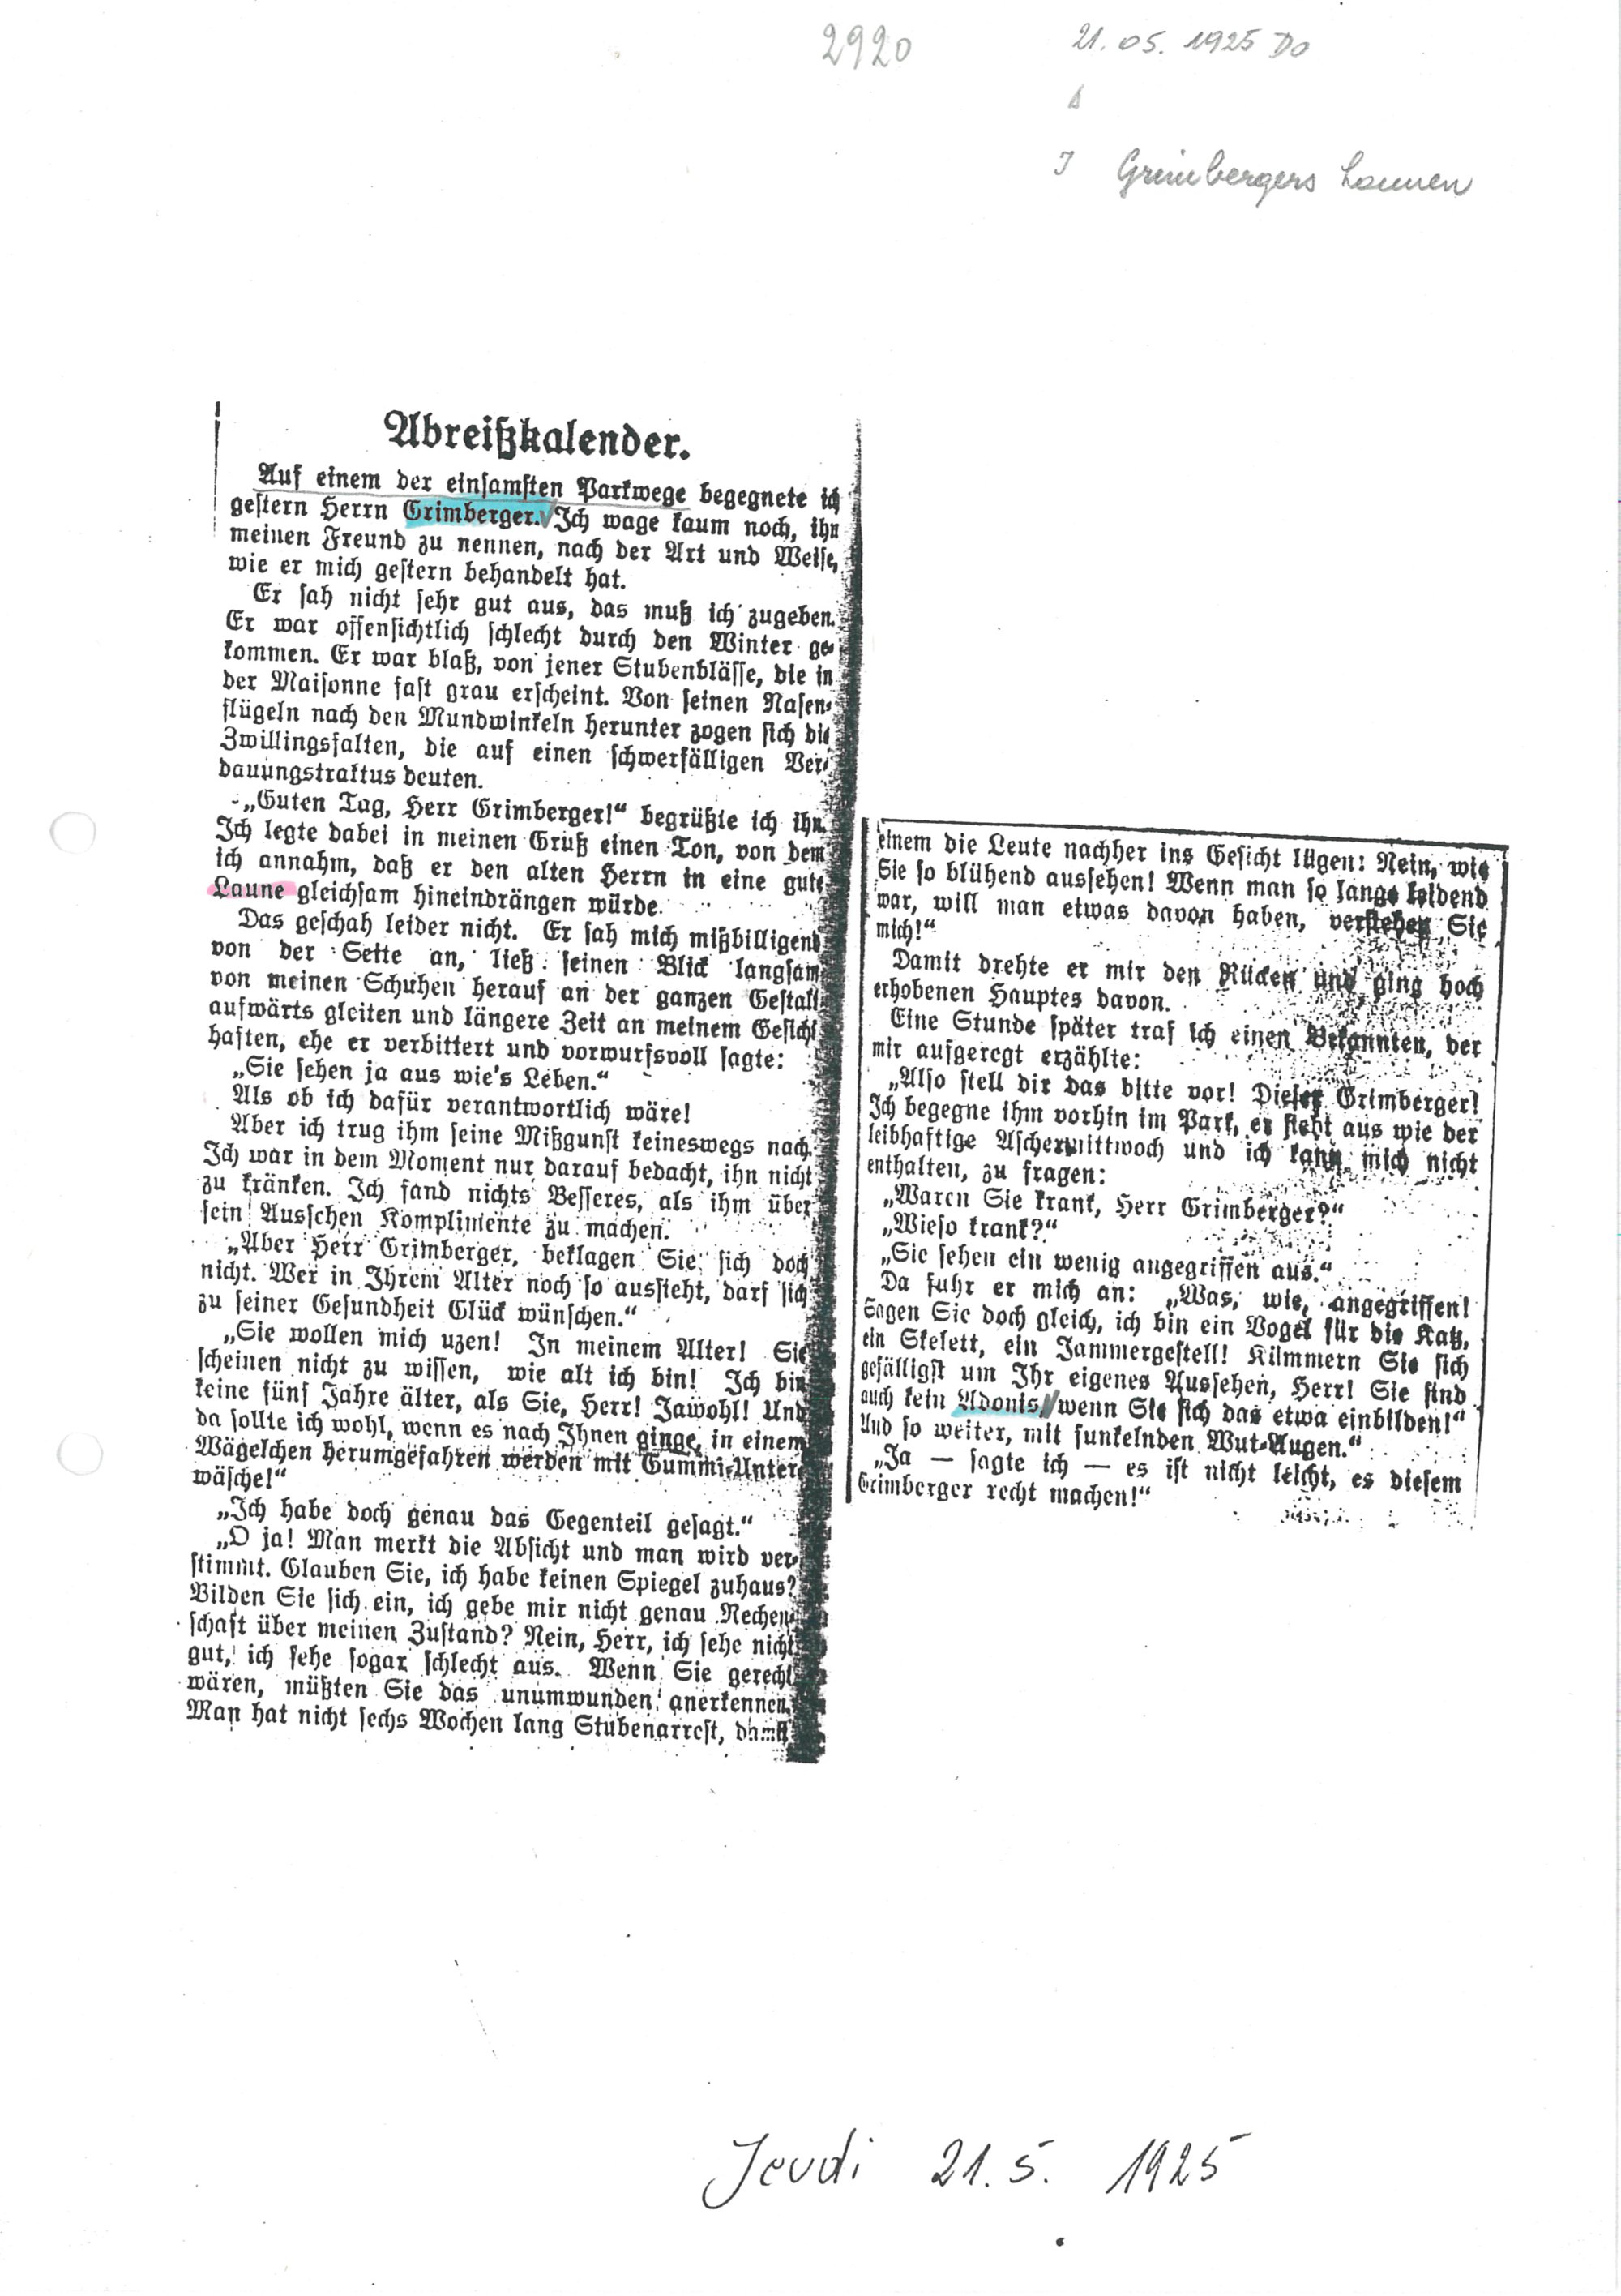 2920
21.05.1925 Do
J Grimbergers Launen
Abreißkalender.
Auf einem der einsamsten Parkwege begegnete ich
gestern Herrn Grimberger. Ich wage kaum noch, ihn
meinen Freund zu nennen, nach der Art und Weise,
wie er mich gestern behandelt hat.
Er sah nicht sehr gut aus, das muß ich zugeben.
Er war offensichtlich schlecht durch den Winter ge-
kommen. Er war blaß, von jener Stubenblässe, die in
der Maisonne fast grau erscheint. Von seinen Nasen-
flügeln nach den Mundwinkeln herunter zogen sich die
Zwillingsfalten, die auf einen schwerfälligen Ver-
dauungstraktus deuten.
„Guten Tag, Herr Grimberger!“ begrüßte ich ihn.
Ich legte dabei in meinen Gruß einen Ton, von dem
ich annahm, daß er den alten Herrn in eine gute
Laune gleichsam hineindrängen würde.
Das geschah leider nicht. Er sah mich mißbilligend
von der Seite an, ließ seinen Blick langsam
von meinen Schuhen herauf an der ganzen Gestalt
aufwärts gleiten und längere Zeit an meinem Gesicht
haften, ehe er verbittert und vorwurfsvoll sagte:
„Sie sehen ja aus wie's Leben.“
Als ob ich dafür verantwortlich wäre!
Aber ich trug ihm seine Mißgunst keineswegs nach.
Ich war in dem Moment nur darauf bedacht, ihn nicht
zu kränken. Ich fand nichts Besseres, als ihm über
sein Aussehen Komplimente zu machen.
„Aber Herr Grimberger, beklagen Sie sich doch
nicht. Wer in Ihrem Alter noch so aussieht, darf sich
zu seiner Gesundheit Glück wünschen.“
„Sie wollen mich uzen! In meinem Alter! Sie
scheinen nicht zu wissen, wie alt ich bin! Ich bin
keine fünf Jahre älter, als Sie, Herr! Jawohl! Und
da sollte ich wohl, wenn es nach Ihnen ginge, in einem
Wägelchen herumgefahren werden mit Gummi-Unter-
wäsche!“
„Ich habe doch genau das Gegenteil gesagt.“
„O ja! Man merkt die Absicht und man wird ver-
stimmt. Glauben Sie, ich habe keinen Spiegel zuhaus?
Bilden Sie sich ein, ich gebe mir nicht genau Rechen-
schaft über meinen Zustand? Nein, Herr, ich sehe nicht
gut, ich sehe sogar schlecht aus. Wenn Sie gerecht
wären, müßten Sie das unumwunden anerkennen.
Man hat nicht sechs Wochen lang Stubenarrest, damit
einem die Leute nachher ins Gesicht lügen: Nein, wie
Sie so blühend aussehen! Wenn man so lange leidend
war, will man etwas davon haben, verstehen Sie
mich!“
Damit drehte er mir den Rücken und ging hoch
erhobenen Hauptes davon.
Eine Stunde später traf ich einen Bekannten, der
mir aufgeregt erzählte:
„Also stell dir das bitte vor! Dieser Grimberger!
Ich begegne ihm vorhin im Park, er sieht aus wie der
leibhaftige Aschermittwoch und ich kann mich nicht
enthalten, zu fragen:
„Waren Sie krank, Herr Grimberger?“
„Wieso krank?“
„Sie sehen ein wenig angegriffen aus.“
Da fuhr er mich an: „Was, wie, angegriffen!
Sagen Sie doch gleich, ich bin ein Vogel für die Katz,
ein Skelett, ein Jammergestell! Kümmern Sie sich
gefälligst um Ihr eigenes Aussehen, Herr! Sie sind
auch kein Adonis, wenn Sie sich das etwa einbilden!“
Und so weiter, mit funkelnden Wut-Augen.“
„Ja — sagte ich — es ist nicht leicht, es diesem
Grimberger recht machen!“
Jeudi 21.5. 1925